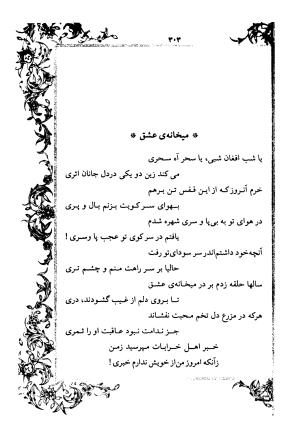 ۳۰۳
* میخانه‌ی عشق *
یا شب افغان شبی، یا سحر آه سحری
می کند زین دو یکی در دل جانان اثری
خرم آنروز که از این قفس تن برهم
بهوای سر کویت بزنم بال و پری
در هوای تو به بی‌پا و سری شهره شدم
یافتم در سر کوی تو عجب پا وسری !
آنچه خود داشتم اندر سر سودای تو رفت
حالیا بر سر راهت منم و چشم تری
سالها حلقه زدم بر در میخانه‌ی عشق
تا بروی دلم از غیب گشودند، دری
هر که در مزرع دل تخم محبت نفشاند
جز ندامت نبود عاقبت او را ثمری
خبر اهل خرابات مپرسید زمن
زآنکه امروز من از خویش ندارم خبری !